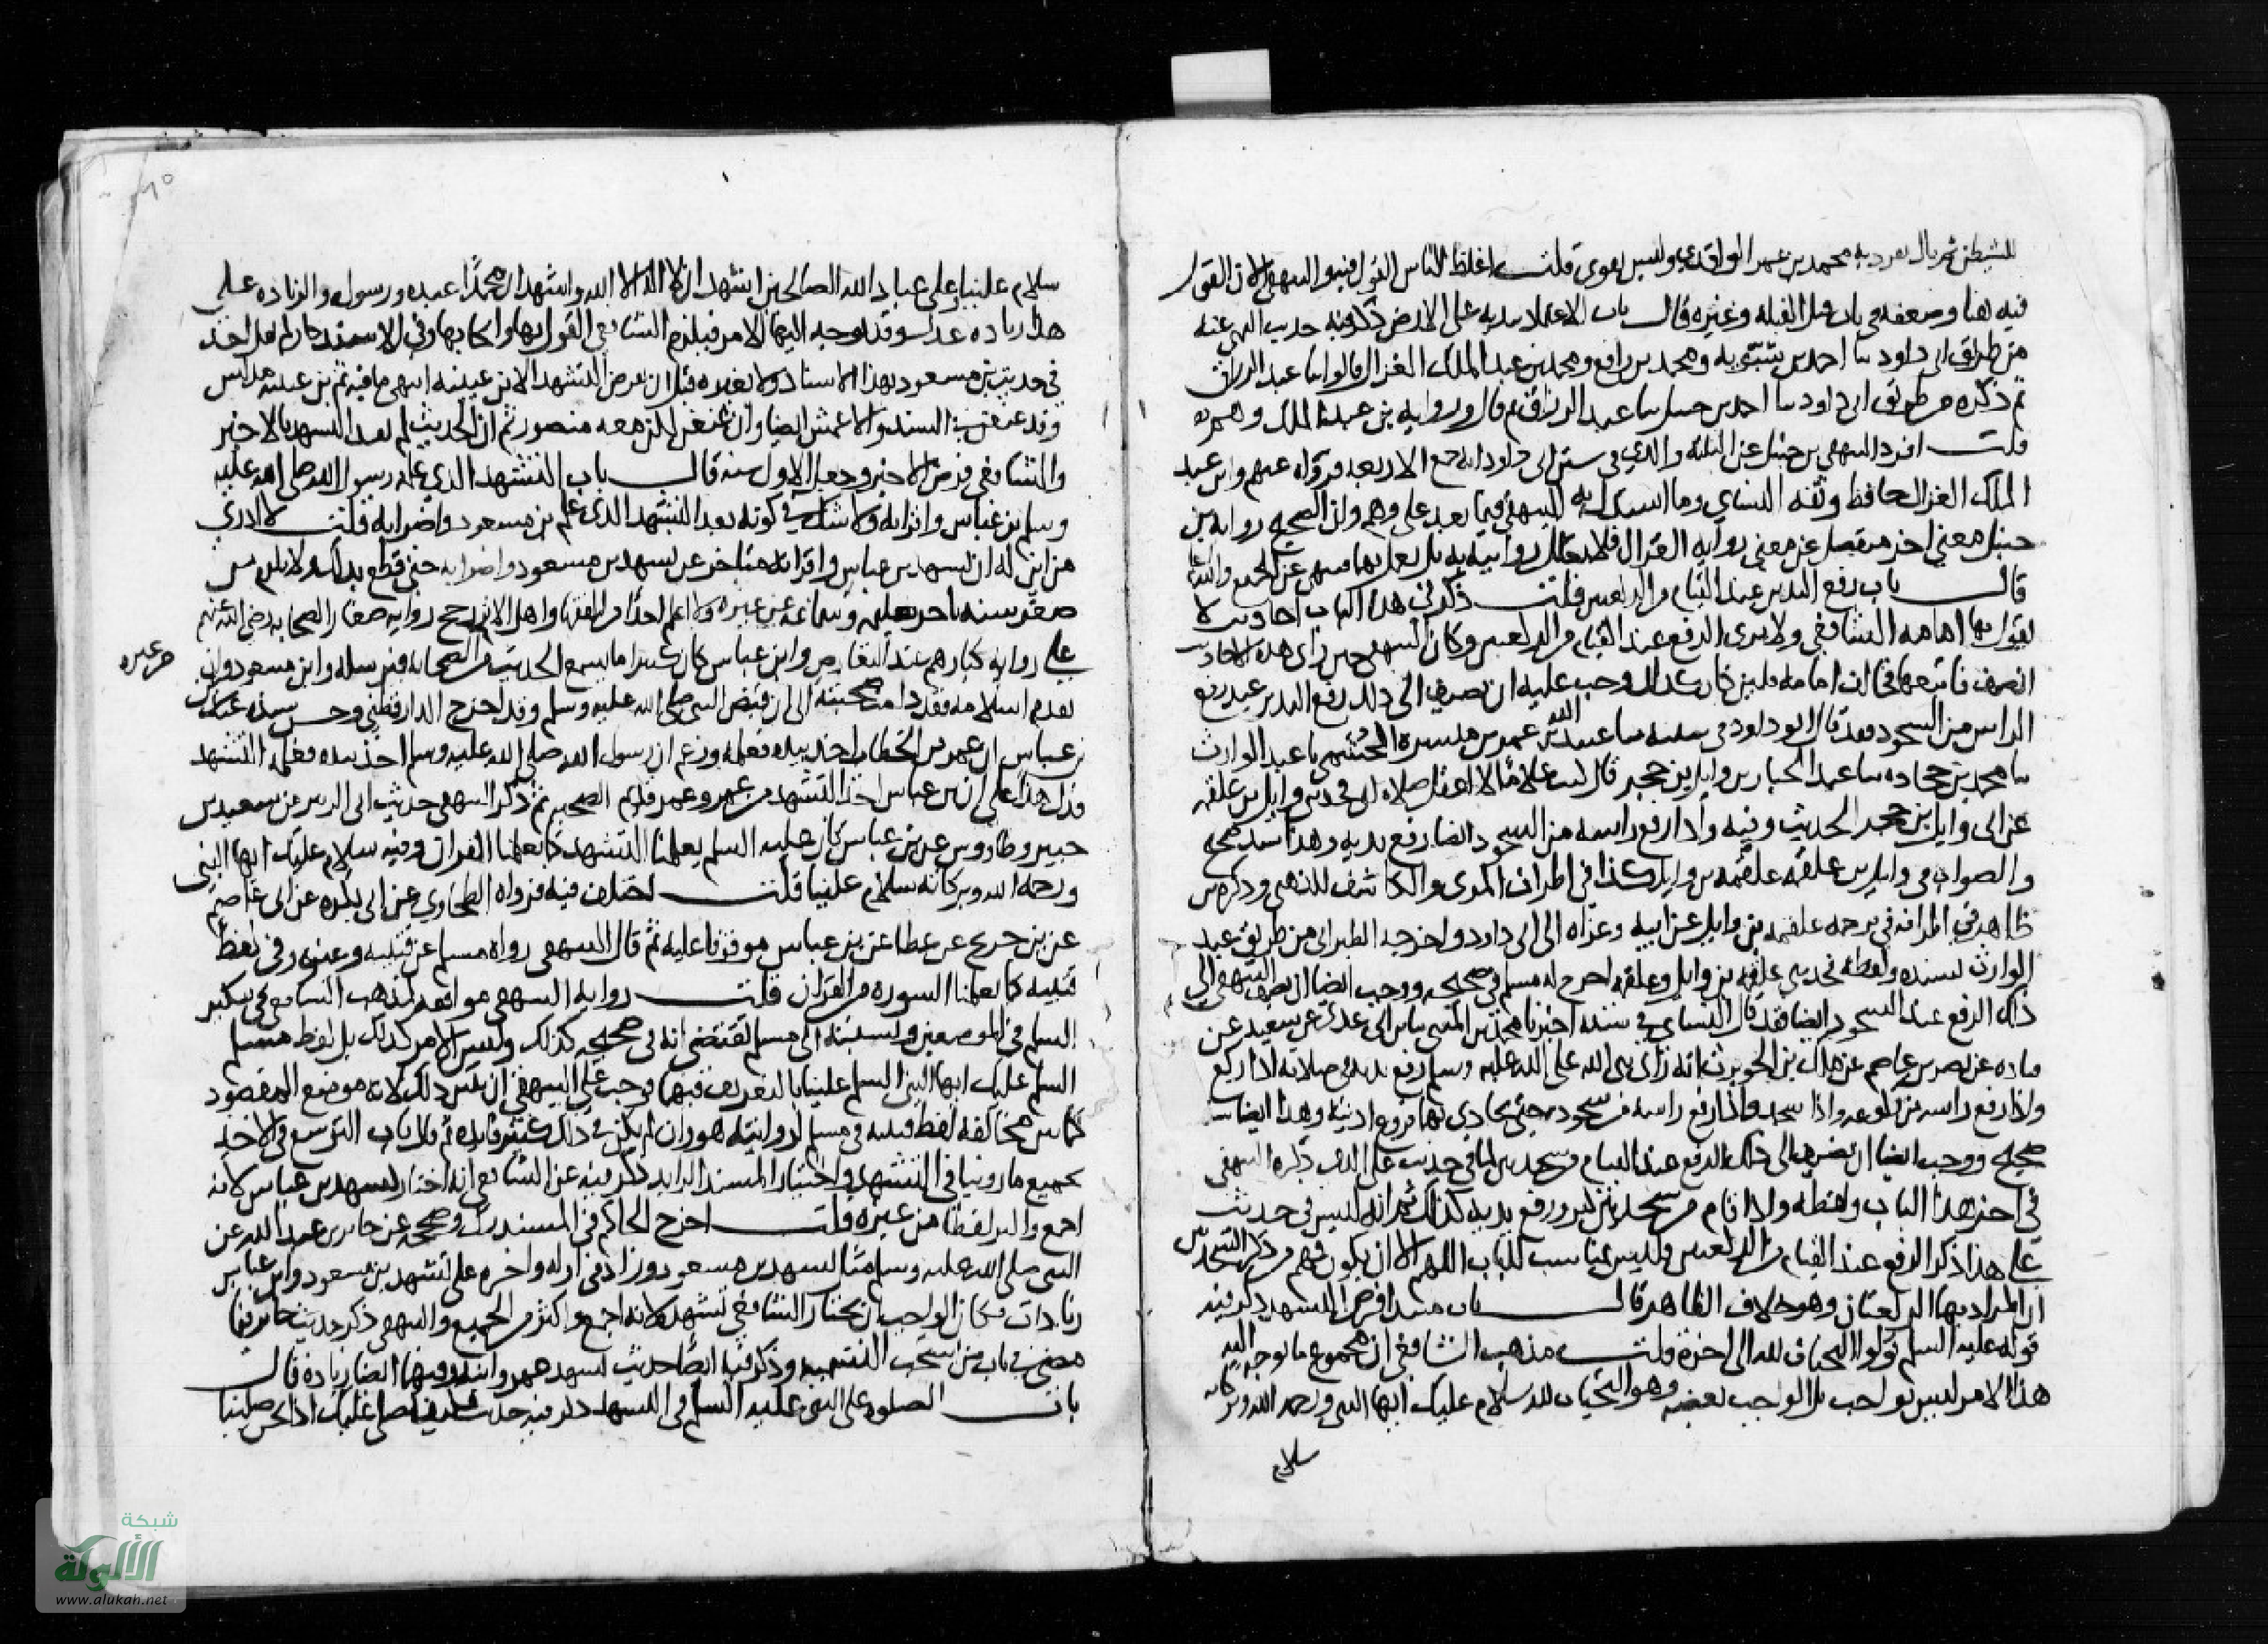 للشيطن ثم قال تفرد به محمد بن عمر الواقدي وليس بقوي قلت اغلظ الناس القول فيه والبيهقي الان القول
فيه هنا وضعفه في باب قبل القبلة وغيره قال باب الاعتماد بيديه على الارض ذكر فيه حديث النهي عنه
من طريق ابي داود ثنا احمد بن شبويه ومحمد بن رافع ومحمد بن عبد الملك الغزال قالوا ثنا عبد الرزاق
ثم ذكره من طريق ابي داود ثنا احمد بن حنبل ثنا عبد الرزاق ثم قال ورواية بن عبد الملك وهم
قلت افرد البيهقي بن حنبل عن الثلثة والذي في سنن ابي داود انه جمع الاربعة فرواه عنهم وابن عبد
الملك الغزال حافظ وثقه النساي وما استدل به البيهقي فيما بعد على وهمه وان الصحيح رواية بن
حنبل معنى اخر منفصل عن معنى رواية الغزال فلا تعلل روايته به بل يعمل بهما فينهى عن الجميع والله اعلم
قال باب رفع اليدين عند القيام من الركعتين قلت ذكر في هذا الباب احاديث لا
يقول بها امامه الشافعي ولا يرى الرفع عند القيام من الركعتين وكان البيهقي حين راى هذه الاحاديث
انصف فاتبعها وخالف امامه فلين كان كذلك وجب عليه ان يضيف الى ذلك رفع اليدين عند رفع
الراس من السجود فقد قال ابو داود في سننه ثنا عبيد الله بن عمر بن ميسرة الجشمي ثنا عبد الوارث
ثنا محمد بن جحادة ثنا عبد الجبار بن وايل بن حجر قال كنت غلاما لا اعقل صلاة ابي فحدثني وايل بن علقمة
عن ابي وايل بن حجر الحديث وفيه واذا رفع راسه من السجود ايضا رفع يديه وهذا سند صحيح
والصواب في وايل بن علقمة علقمة بن وايل كذا في اطراف المزي والكاشف للذهبي وذكره بن
طاهر في اطرافه في ترجمة علقمة بن وايل عن ابيه وعزاه الى ابي داود واخرجه الطبراني من طريق عبد
الوارث بسنده ولفظه فحدثني علقمة بن وايل وعلقمة اخرج له مسلم في صحيحه ووجب ايضا ان يضيف البيهقي الى
ذلك الرفع عند السجود ايضا فقد قال النساي في سننه اخبرنا محمد بن المثنى ثنا بن ابي عدي عن سعيد عن
قتادة عن نصر بن عاصم عن ملك بن الحويرث انه راى نبي الله صلى الله عليه وسلم رفع يديه في صلاته اذا ركع
واذا رفع راسه من ركوعه واذا سجد واذا رفع راسه من سجوده حتى يحاذي بهما فروع اذنيه وهذا ايضا سند
صحيح ووجب ايضا ان يضيف الى ذلك الرفع عند القيام من سجدتين لما في حديث علي الذي ذكره البيهقي
في اخر هذا الباب ولفظه واذا قام من سجدتين كبر ورفع يديه كذلك ثم انه ليس في حديث
علي هذا ذكر الرفع عند القيام من الركعتين فليس بمناسب للباب اللهم الا ان يكون فهم من ذكر السجدتين
ان المراد بهما الركعتان وهو خلاف الظاهر قال باب مبتدا فرض التشهد ذكر فيه
قوله عليه السلم قولوا التحيات لله الى اخره قلت مذهب الشافعي ان مجموع ما توجه اليه
هذا الامر ليس بواجب بل الواجب بعضه وهو التحيات لله سلام عليك ايها النبي ورحمة الله وبركاته
سلام
سلام علينا وعلى عباد الله الصالحين اشهد ان لا اله الا الله واشهد ان محمدا عبده ورسوله والزيادة على
هذا زيادة عدل وقد توجه اليها الامر فيلزم الشافعي القول بها وايجابها وفي الاستذكار لم يقل احد
في حديث بن مسعود بهذا الاسناد ولا بغيره قبل ان يفرض التشهد الا بن عيينة انتهى ما فيه ثم بن عيينة مدلس
وقد عنعن في السند والاعمش ايضا وان عنعن لكن معه منصور ثم ان الحديث لم يقيد التشهد بالاخير
والشافعي فرض الاخير وجعل الاول سنة قال باب التشهد الذي علمه رسول الله صلى الله عليه
وسلم بن عباس واقرانه ولا شك في كونه بعد التشهد الذي علم بن مسعود واضرابه قلت لا ادري
من اين له ان تشهد بن عباس واقرانه متاخر عن تشهد بن مسعود واضرابه حتى قطع بذلك ولا يلزم من
صغر سنه تاخر تعليمه وسماعه عن غيره ولا اعلم احدا من الفقها واهل الاثر رجح رواية صغار الصحابة رضي الله عنهم
على رواية كبارهم عند التعارض وابن عباس كان كثيرا ما يسمع الحديث من الصحابة فيرسله وابن مسعود وان
من غيره
تقدم اسلامه فقد دامت صحبته الى ان قبض النبي صلى الله عليه وسلم وقد اخرج الدارقطني وحسن سنده عن
بن عباس ان عمر بن الخطاب اخذ بيده فعلمه وزعم ان رسول الله صلى الله عليه وسلم اخذ بيده فعلمه التشهد
فدل هذا على ان بن عباس اخذ التشهد من عمر وعمر قديم الصحبة ثم ذكر البيهقي حديث ابي الزبير عن سعيد بن
جبير وطاوس عن بن عباس كان عليه السلم يعلمنا التشهد كما يعلمنا القران وفيه سلام عليك ايها النبي
ورحمة الله وبركاته سلام علينا قلت اختلف فيه فرواه الطحاوي عن ابي بكرة عن ابي عاصم
عن بن جريج عن عطا عن بن عباس موقوفا عليه ثم قال البيهقي رواه مسلم عن قتيبة وغيره وفي لفظ
قتيبة كما يعلمنا السورة من القران قلت رواية البيهقي موافقة لمذهب الشافعي في تنكير
السلم في الموضعين ونسبته الى مسلم تقتضي انه في صحيحه كذلك وليس الامر كذلك بل لفظ مسلم
السلم عليك ايها النبي السلم علينا بالتعريف فيهما فوجب على البيهقي ان يبين ذلك لانه موضع المقصود
كما بين مخالفة لفظ قتيبة في مسلم لروايته هو وان لم يكن في ذلك كثير فايدة ثم قال باب التوسع في الاخذ
بجميع ما روينا في التشهد واختيار المسند الزايد ذكر فيه عن الشافعي انه اختار تشهد بن عباس لانه
اجمع واكثر لفظا من غيره قلت اخرج الحاكم في المستدرك وصححه عن جابر بن عبد الله عن
النبي صلى الله عليه وسلم مثل تشهد بن مسعود وزاد في اوله واخره على تشهد بن مسعود وابن عباس
زيادات فكان الواجب ان يختار الشافعي تشهده لانه اجمع واكثر من الجميع والبيهقي ذكر حديث جابر فيما
مضى في باب من استحب التسمية وذكر فيه ايضا حديث تشهد عمر وابنه وفيهما ايضا زيادة قال
باب الصلوة على النبي عليه السلم في التشهد ذكر فيه حديث كيف نصلي عليك اذا نحن صلينا
شبكة
الألوكة
www.alukah.net